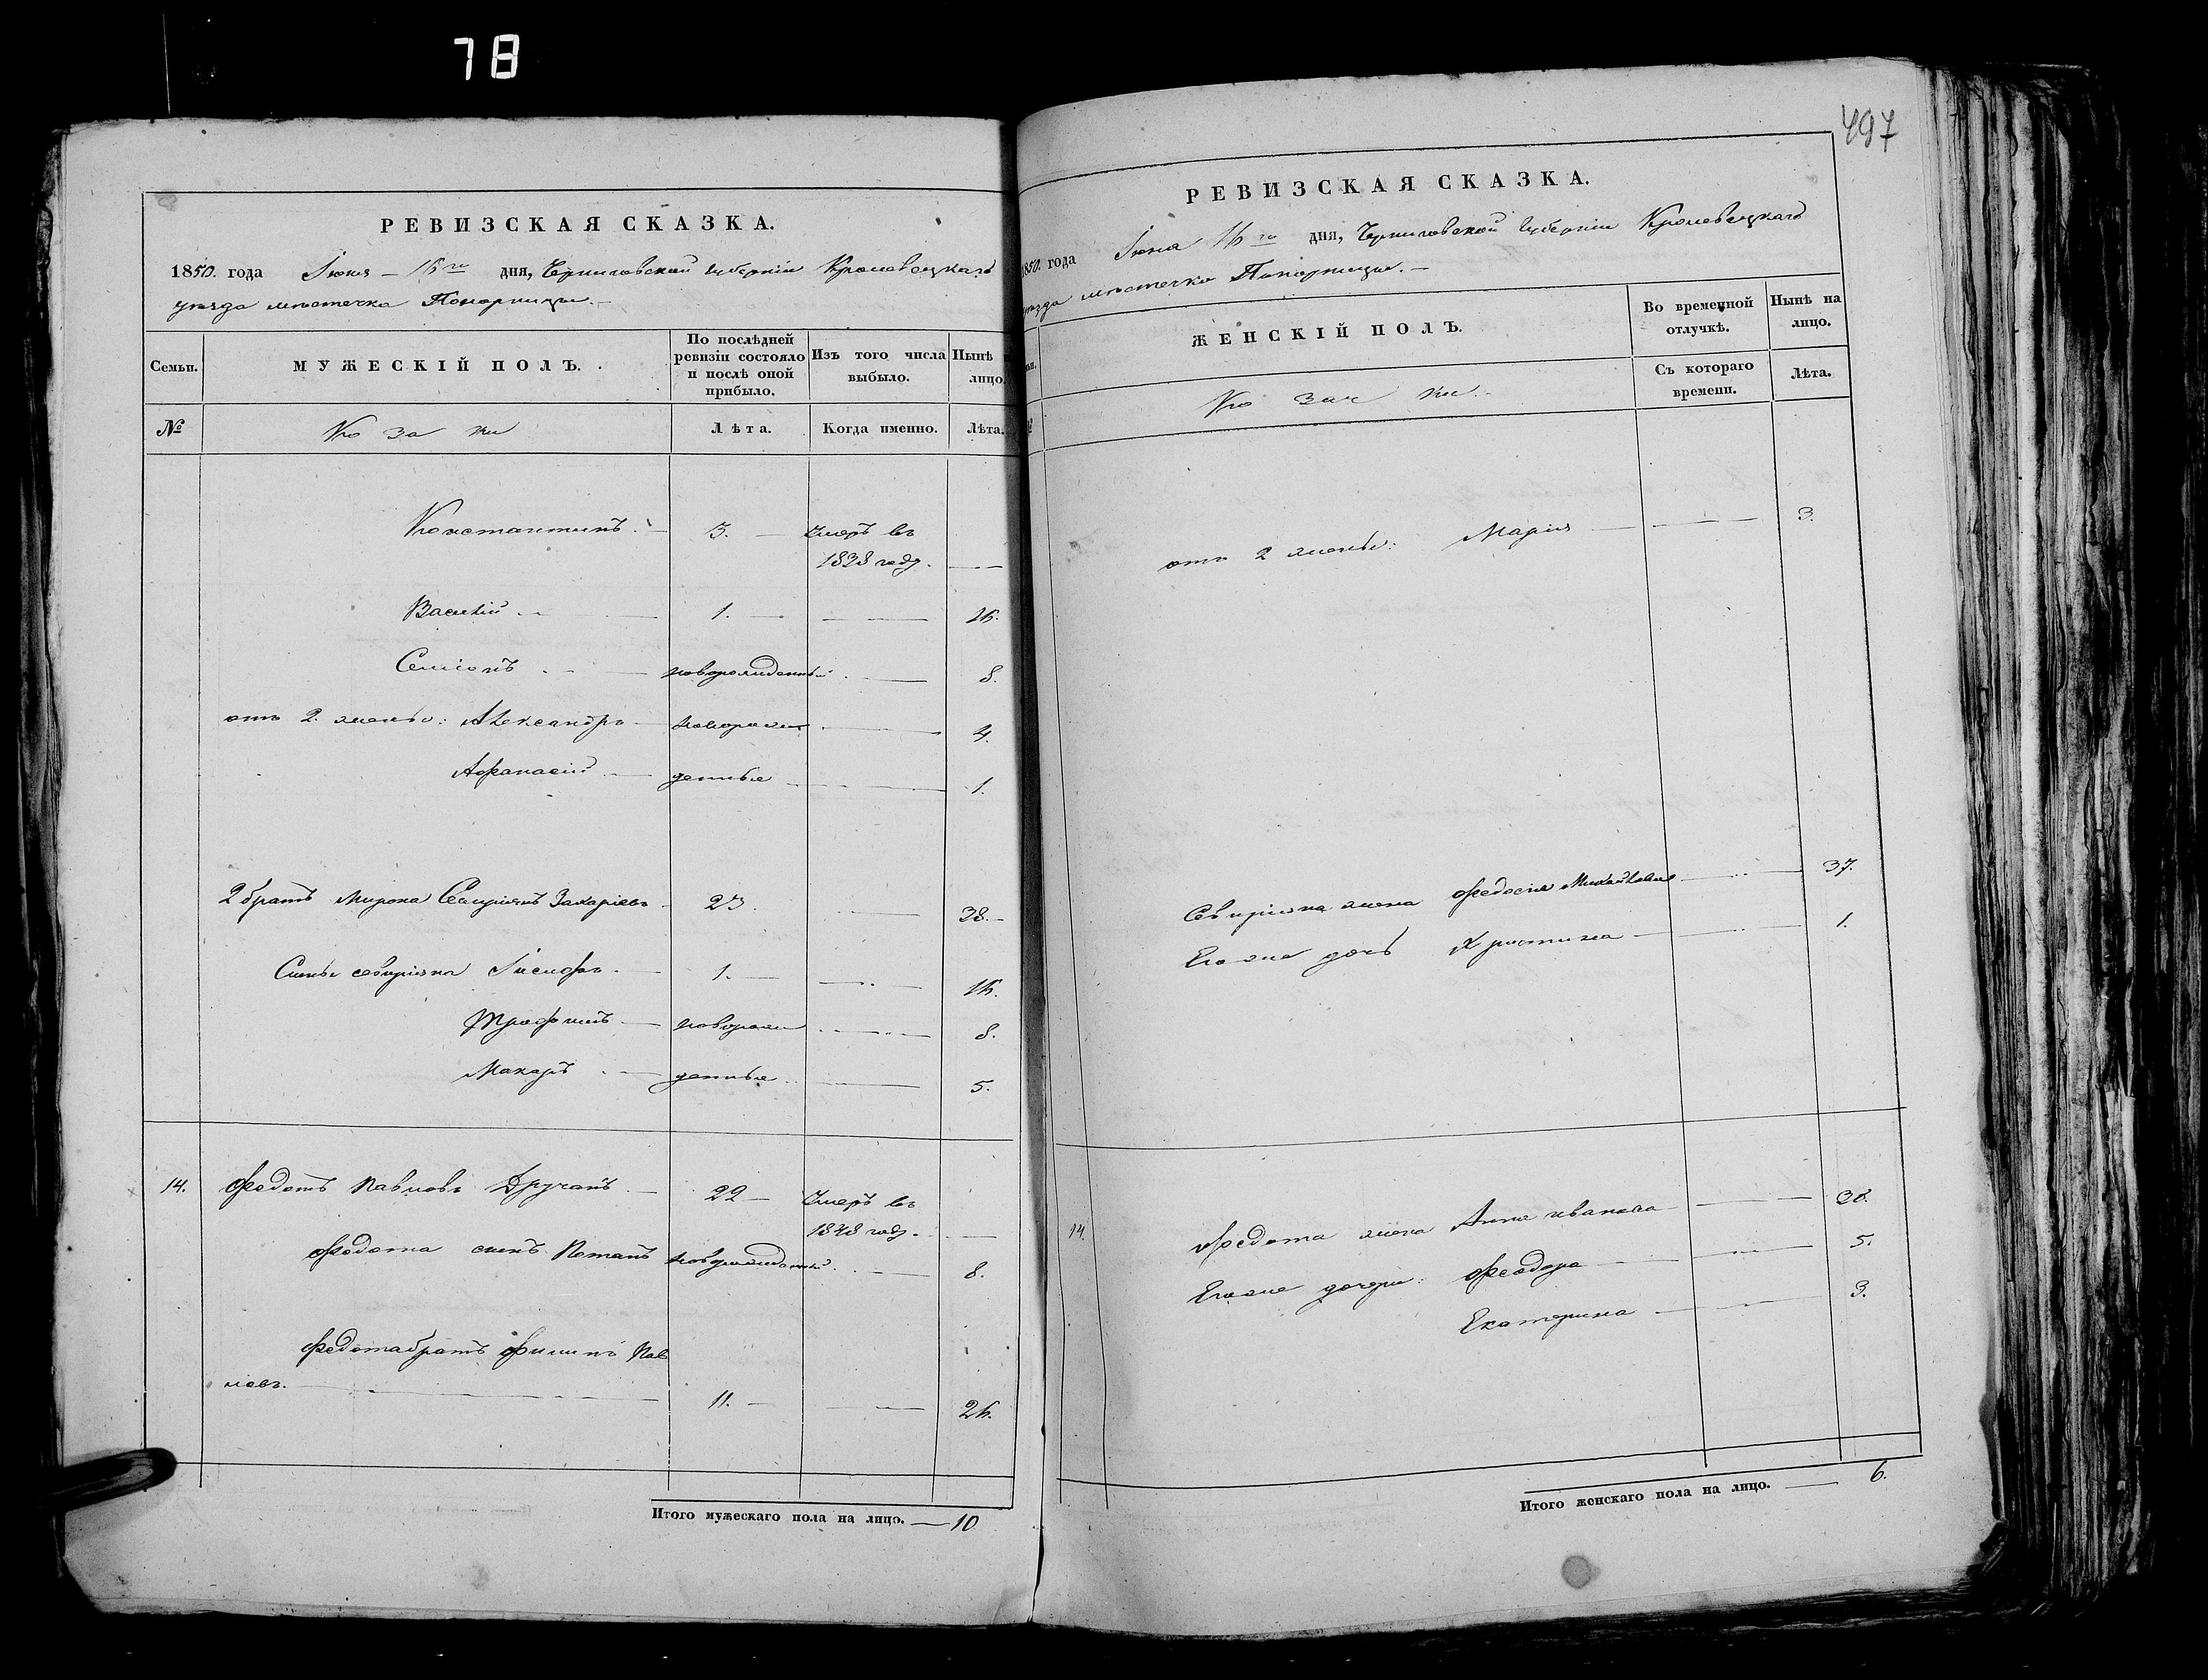 78
РЕВИЗСКАЯ СКАЗКА.
1850. года Іюня – 16го дня, Черниговской губерніи Кролевецкаго
уѣзда мѣстечка Понорницы. –
Семьи. МУЖЕСКІЙ ПОЛЪ. По послѣдней ревизіи состояло и послѣ оной прибыло. Изъ того числа выбыло. Нынѣ лицо.
№ Козаки Лѣта. Когда именно. Лѣта.
Константинъ. 3. Умеръ въ
1838 году.
Василій 1. 16.
Семіонъ новорожденный 8.
отъ 2. жены: Александръ новорож 4.
Афанасій денные 1.
2 братъ Мирона Севиріянъ Захаріевъ 23 38.
Сыны севиріяна Іосифъ 1. 16.
Трофимъ новорож 8.
Макаръ денные 5.
14. Федотъ Павловъ Дручанъ 22 Умеръ въ
1848 году.
Федота сынъ Потапъ новорожденный 8.
Федота братъ Филипъ Пав
ловъ. 11. 26.
Итого мужескаго пола на лицо. 10
497
РЕВИЗСКАЯ СКАЗКА.
1850. года Іюня 16го дня, Черниговской губерніи Кролевецкаго
уѣзда мѣстечка Понорницы. –
ЖЕНСКІЙ ПОЛЪ. Во временной отлучкѣ. Нынѣ на лицо.
Козачки. Съ котораго времени. Лѣта.
отъ 2 жены: Марія 3.
Севиріяна жена Федосія Михайлова 37.
Его же дочь Христина 1.
14. Федота жена Анна иванова 30.
Его же дочери: Феодора 5.
Екатерина 3.
Итого женскаго пола на лицо. 6.